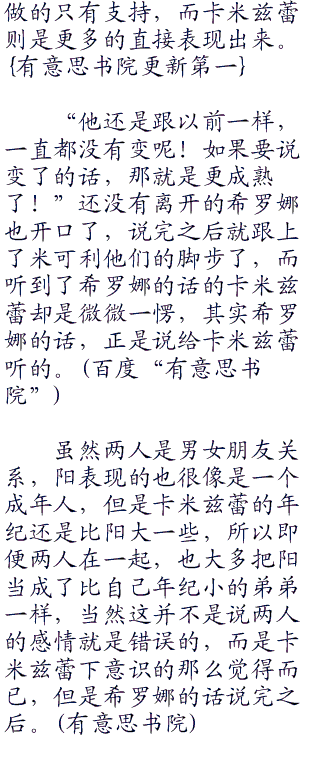 做的只有支持，而卡米兹蕾
则是更多的直接表现出来。
{有意思书院更新第一}
“他还是跟以前一样，
一直都没有变呢！如果要说
变了的话，那就是更成熟
了！”还没有离开的希罗娜
也开口了，说完之后就跟上
了米可利他们的脚步了，而
听到了希罗娜的话的卡米兹
蕾却是微微一愣，其实希罗
娜的话，正是说给卡米兹蕾
听的。(百度“有意思书
院”)
虽然两人是男女朋友关
系，阳表现的也很像是一个
成年人，但是卡米兹蕾的年
纪还是比阳大一些，所以即
便两人在一起，也大多把阳
当成了比自己年纪小的弟弟
一样，当然这并不是说两人
的感情就是错误的，而是卡
米兹蕾下意识的那么觉得而
已，但是希罗娜的话说完之
后。(有意思书院)